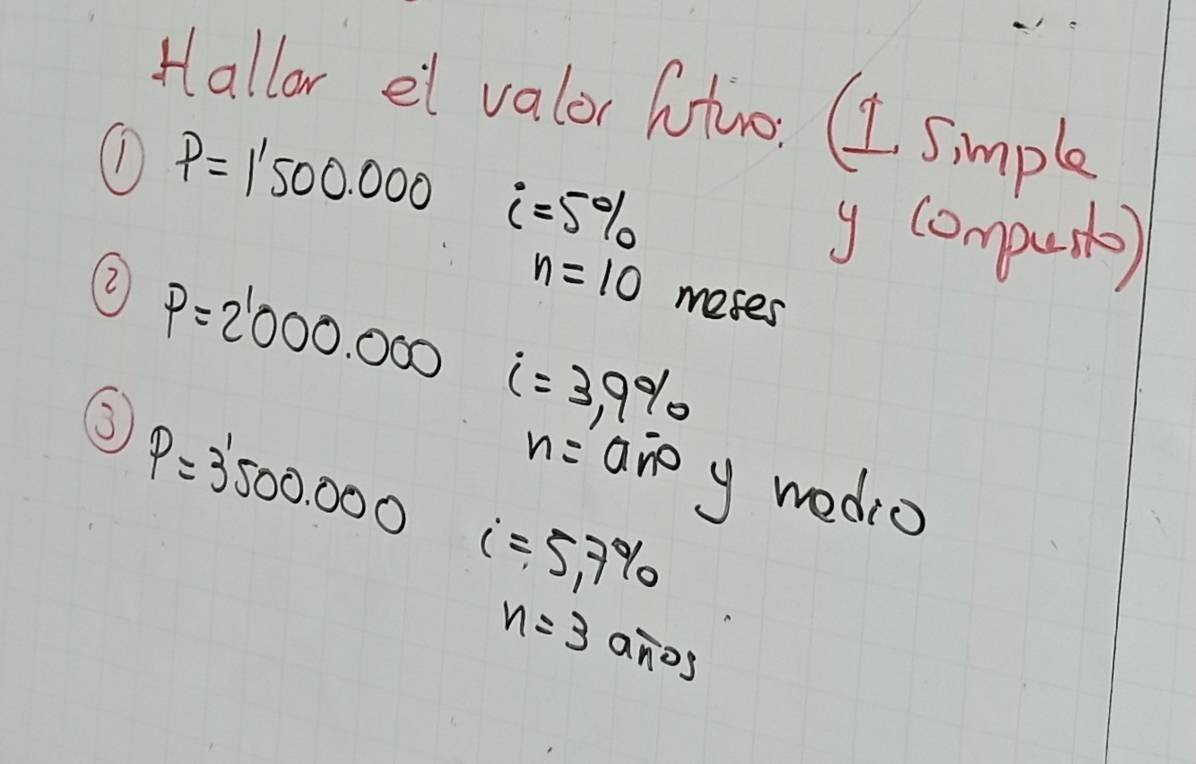 Hallar el valor futuro: (I. Simple
y Compuesto)
① P=1'500.000 i=5%
n=10 meses
② P=2'000.000 i=3,9%
n= año y medio
③ P=3'500.000 i=5,7%
n=3 años